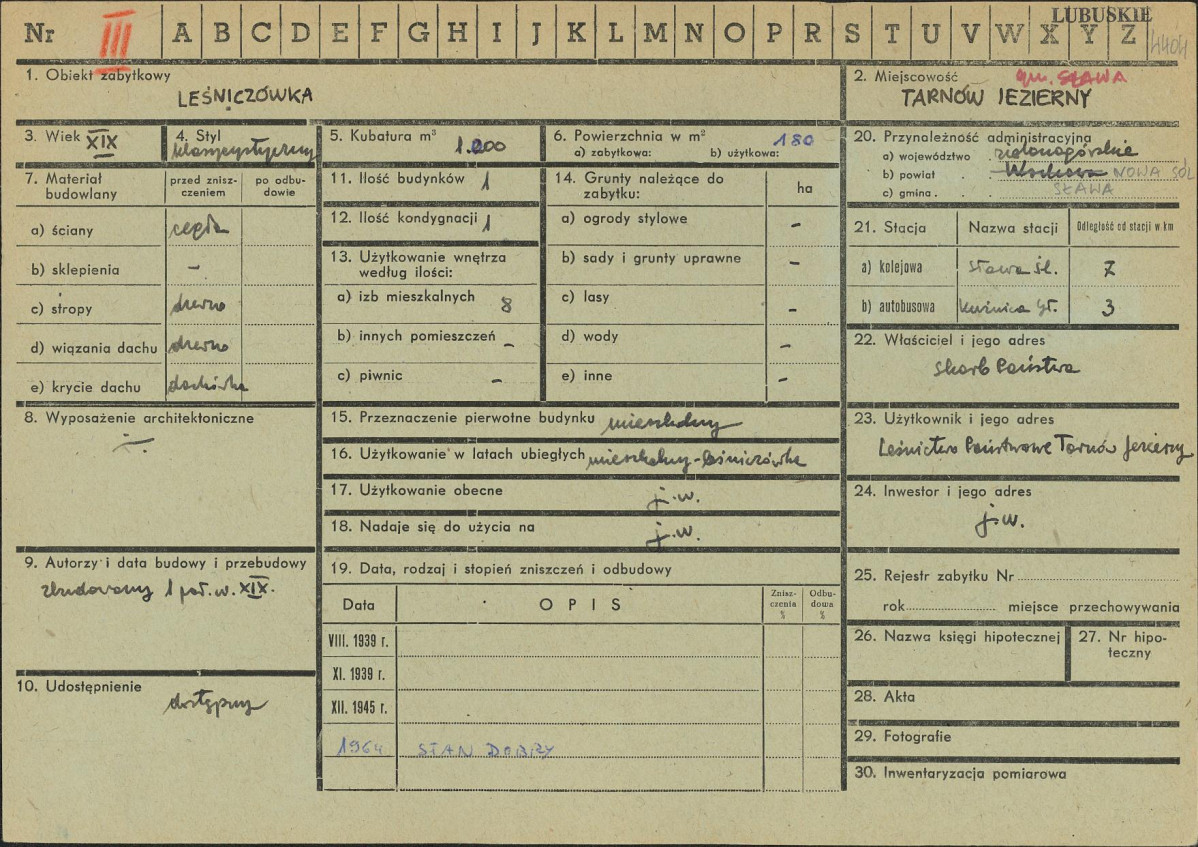 LUBUSKIE
Nr III A B C D E F G H I J K L M N O P R S T U V W X Y Z 4404
1. Obiekt zabytkowy
LEŚNICZÓWKA
2. Miejscowość gm. SŁAWA
TARNÓW JEZIERNY
3. Wiek XIX
4. Styl
klasycystyczny
5. Kubatura m³
1.200
6. Powierzchnia w m²
a) zabytkowa: b) użytkowa: 180
7. Materiał budowlany
przed znisz-
czeniem
po odbu-
dowie
a) ściany cegła
b) sklepienia -
c) stropy drewno
d) wiązania dachu drewno
e) krycie dachu dachówka
8. Wyposażenie architektoniczne
-
9. Autorzy i data budowy i przebudowy
zbudowany 1 poł. w. XIX.
10. Udostępnienie
dostępny
11. Ilość budynków 1
12. Ilość kondygnacji 1
13. Użytkowanie wnętrza
według ilości:
a) izb mieszkalnych 8
b) innych pomieszczeń -
c) piwnic -
14. Grunty należące do
zabytku:
ha
a) ogrody stylowe -
b) sady i grunty uprawne -
c) lasy -
d) wody -
e) inne -
15. Przeznaczenie pierwotne budynku mieszkalny
16. Użytkowanie w latach ubiegłych mieszkalny-leśniczówka
17. Użytkowanie obecne j.w.
18. Nadaje się do użycia na j.w.
19. Data, rodzaj i stopień zniszczeń i odbudowy
Data OPIS
Znisz-
czenia
%
Odbu-
dowa
%
VIII. 1939 r.
XI. 1939 r.
XII. 1945 r.
1964 STAN DOBRY
20. Przynależność administracyjna
a) województwo zielonogórskie
b) powiat Wschowa NOWA SÓL
c) gmina SŁAWA
21. Stacja Nazwa stacji Odległość od stacji w km
a) kolejowa Sława śl. 7
b) autobusowa Kuźnica Gł. 3
22. Właściciel i jego adres
Skarb Państwa
23. Użytkownik i jego adres
Leśnictwo Państwowe Tarnów Jezierny
24. Inwestor i jego adres
j.w.
25. Rejestr zabytku Nr
rok miejsce przechowywania
26. Nazwa księgi hipotecznej
27. Nr hipo-
teczny
28. Akta
29. Fotografie
30. Inwentaryzacja pomiarowa